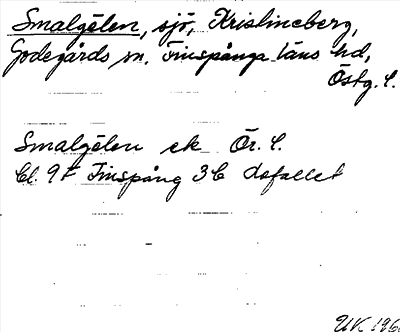 Smalgölen, sjö, Kristineberg,
Godegårds sn. Finspånga läns hd,
Östg. l.
Smalgölen ek Ör. l.
Bl. 9F Finspång 3C Lofallet
UK 196